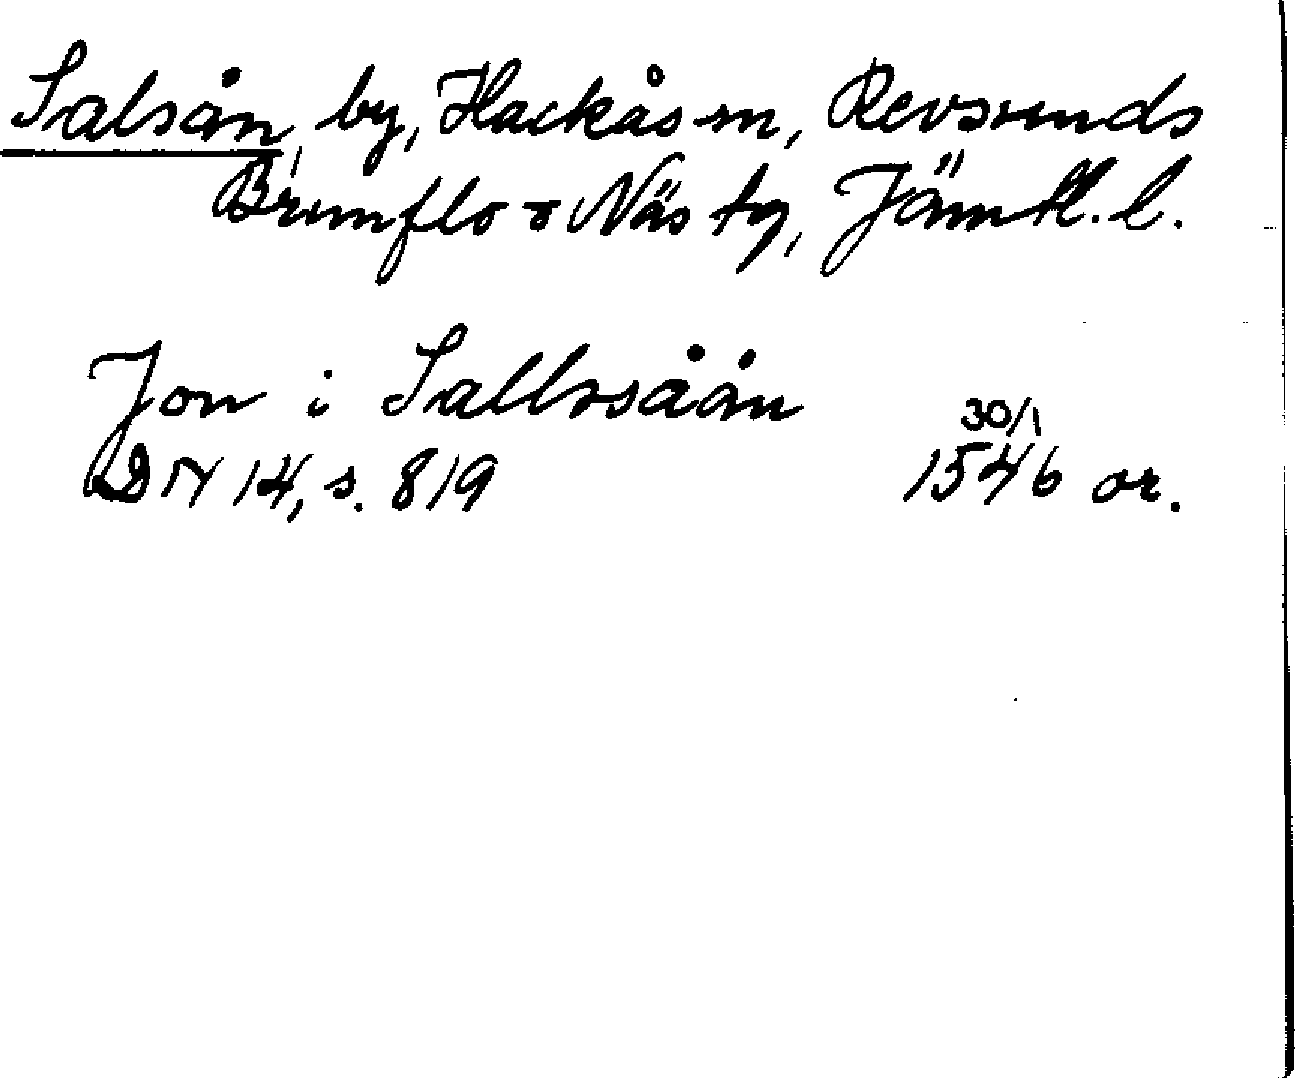 Salsån, by, Hackås sn, Revsunds
Brunflo o Näs tg, Jämtl. l.
Jon i Sallssåån
30/1
DN 14, s. 819 1546 or.